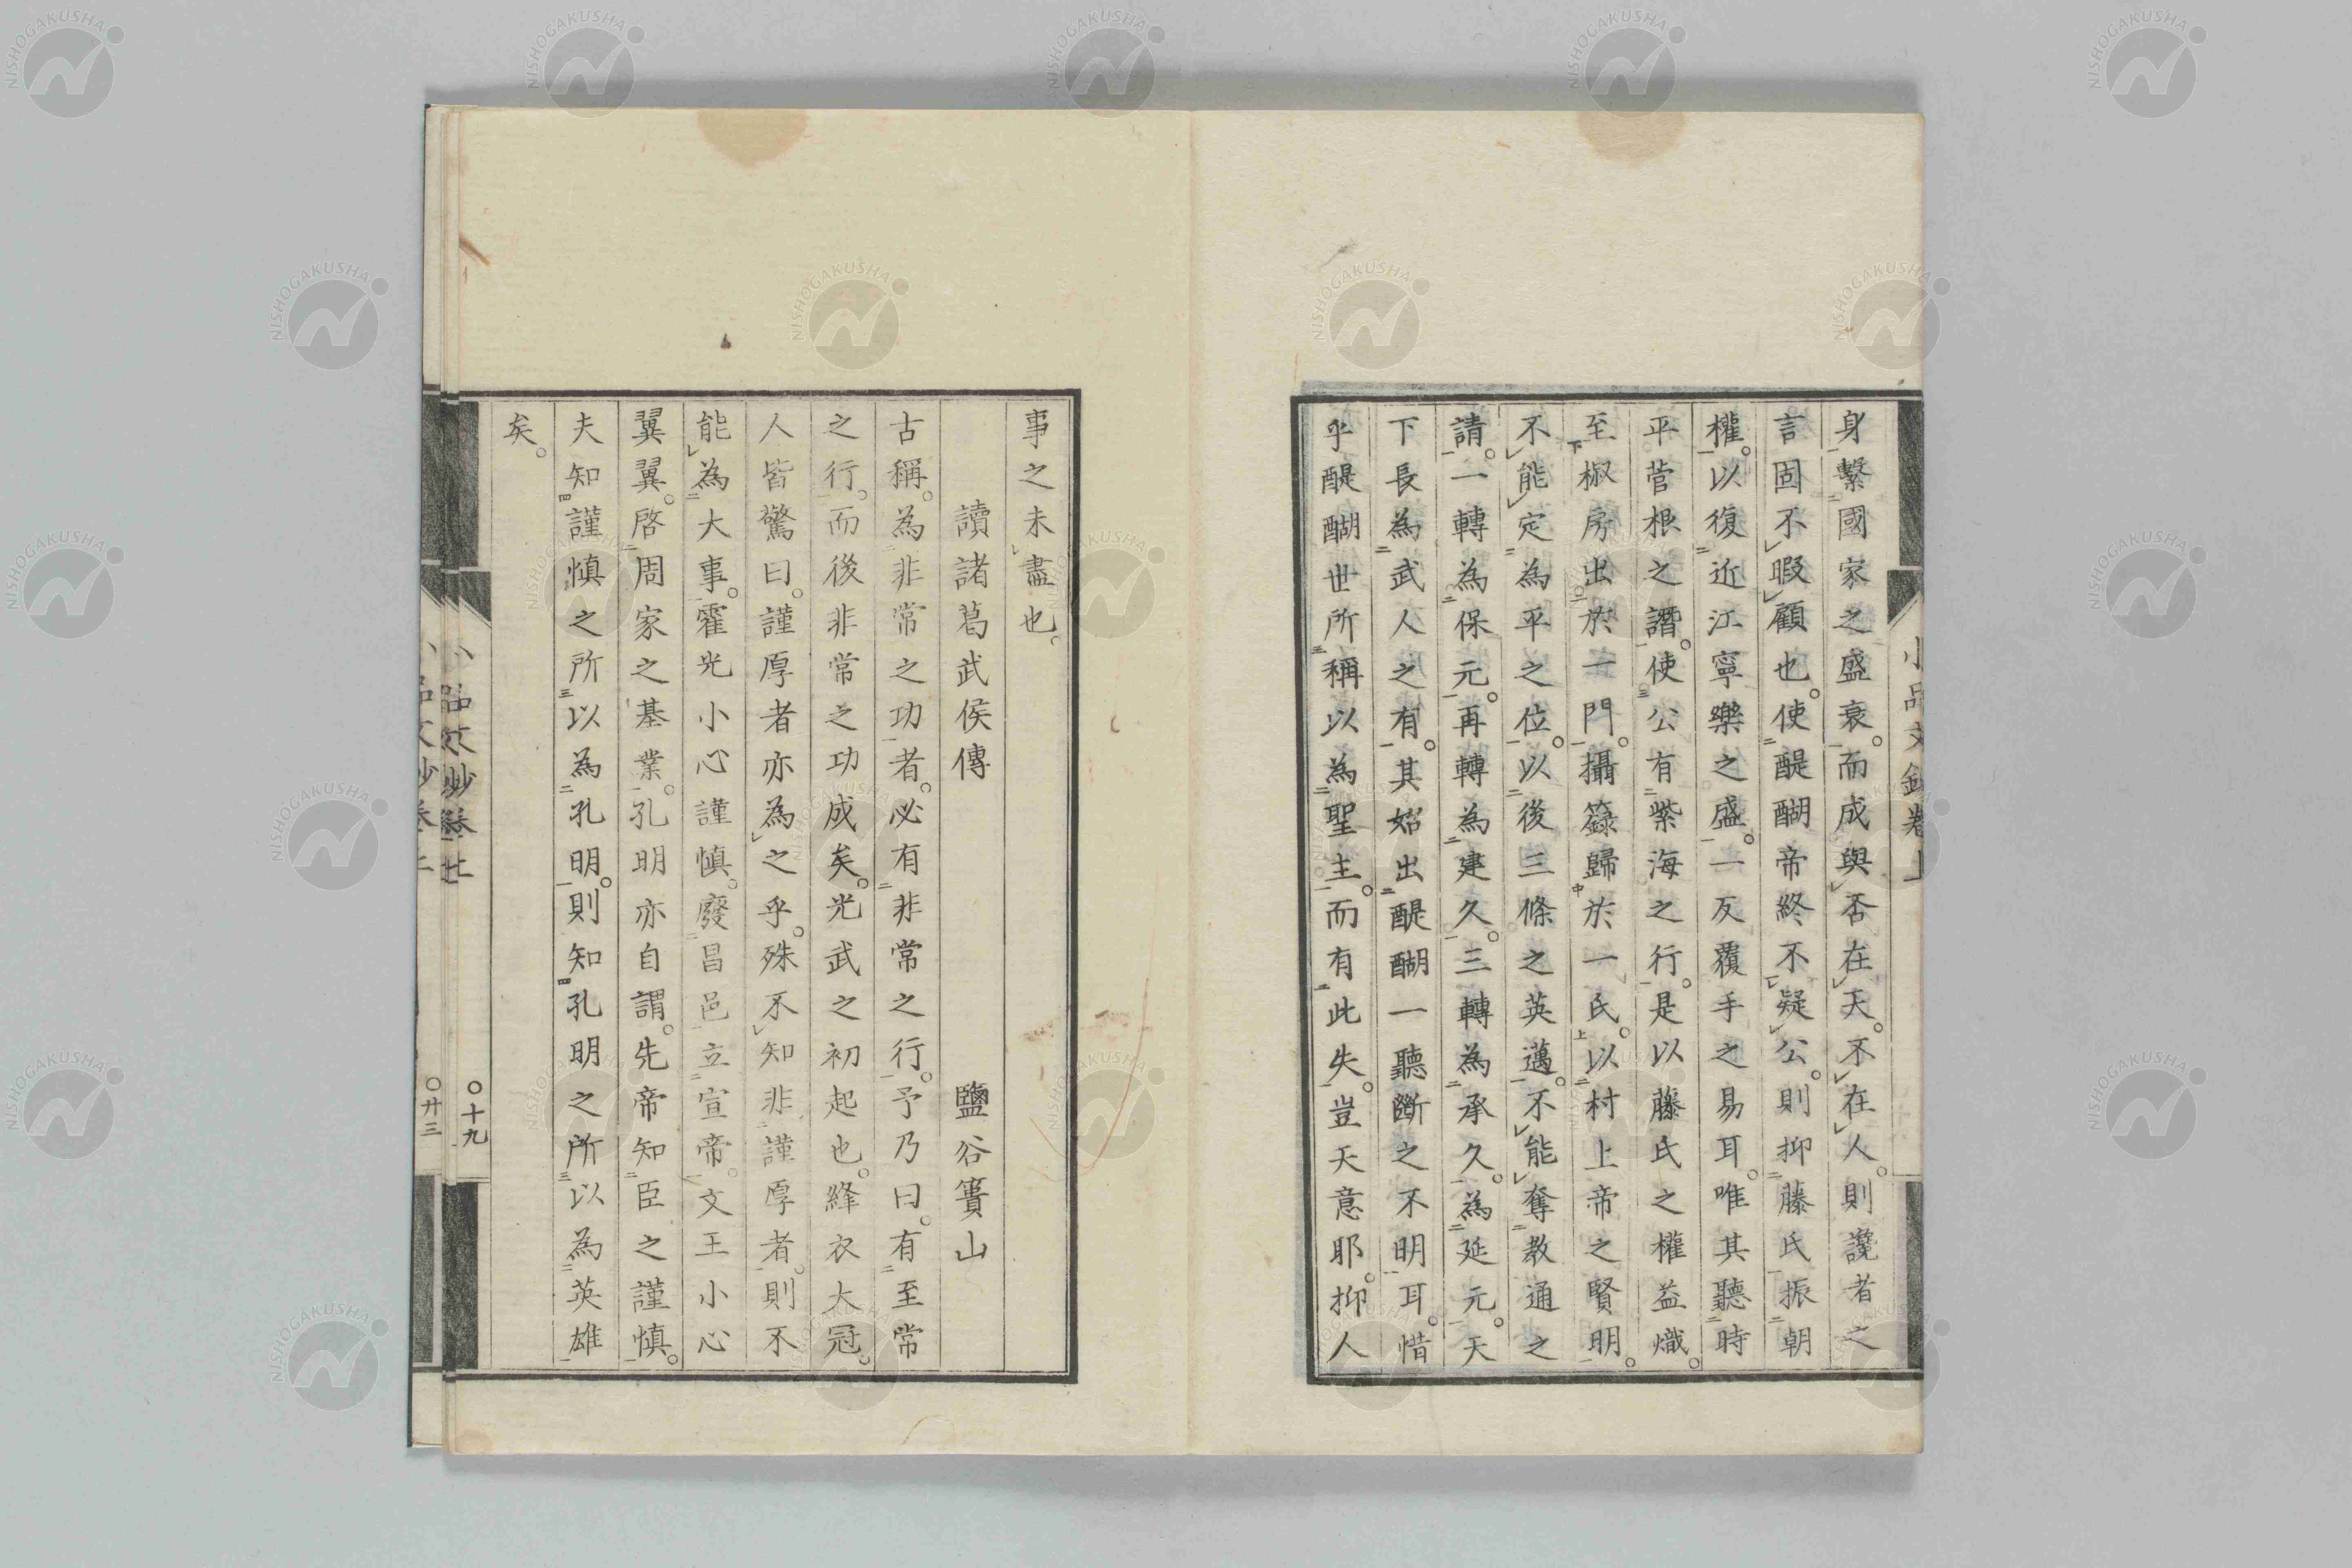 身繫國家之盛衰。而成與否在天。不在人。則讒者之
言固不暇顧也。使醍醐帝終不疑公。則抑藤氏振朝
權。以復近江寧樂之盛。一反覆手之易耳。唯其聽時
平菅根之譖。使公有紫海之行。是以藤氏之權益熾。
至椒房出於一門。攝籙歸於一氏。以村上帝之賢明。
不能定為平之位。以後三條之英邁。不能奪教通之
請。一轉為保元。再轉為建久。三轉為承久。為延元。天
下長為武人之有。其始出醍醐一聽斷之不明耳。惜
乎醍醐世所稱以為聖主。而有此失。豈天意耶。抑人
事之未盡也。
讀諸葛武侯傳 鹽谷簣山
古稱。為非常之功者。必有非常之行。予乃曰。有至常
之行。而後非常之功成矣。光武之初起也。絳衣大冠。
人皆驚曰。謹厚者亦為之乎。殊不知非謹厚者。則不
能為大事。霍光小心謹慎。廢昌邑立宣帝。文王小心
翼翼。啓周家之基業。孔明亦自謂。先帝知臣之謹慎。
夫知謹慎之所以為孔明。則知孔明之所以為英雄
矣。
小品文鈔卷上
〇十九
〇廿三
NISHOGAKUSHA